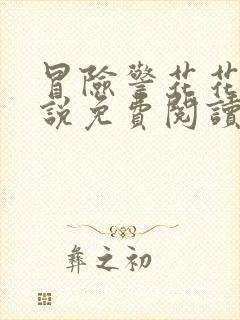 冒險警花花
說免費閱讀
彝之初